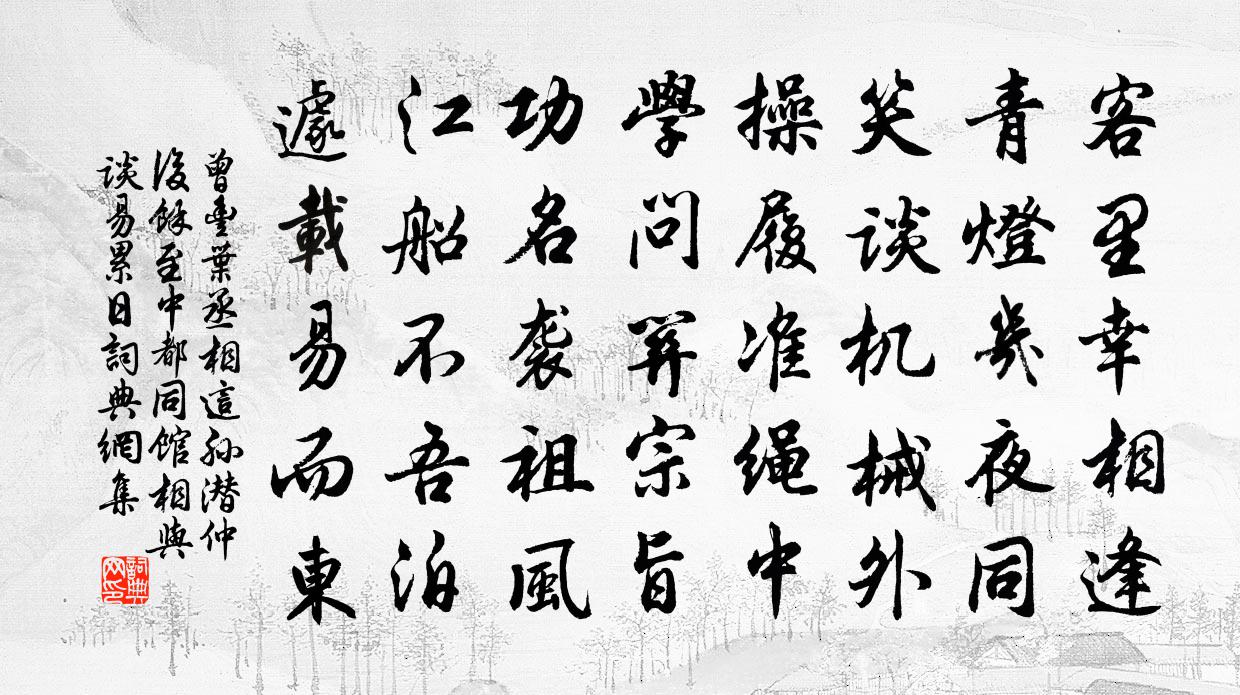 客里幸相逢
青燈幾夜同
笑谈机械外
操履准绳中
學问宗旨
功名袭祖風
江船不吾泊
遽載易而東
曾豊葉丞相這孙潜仲
後餘至中都同馆相與
谈易累日詞典網集
詞典网印